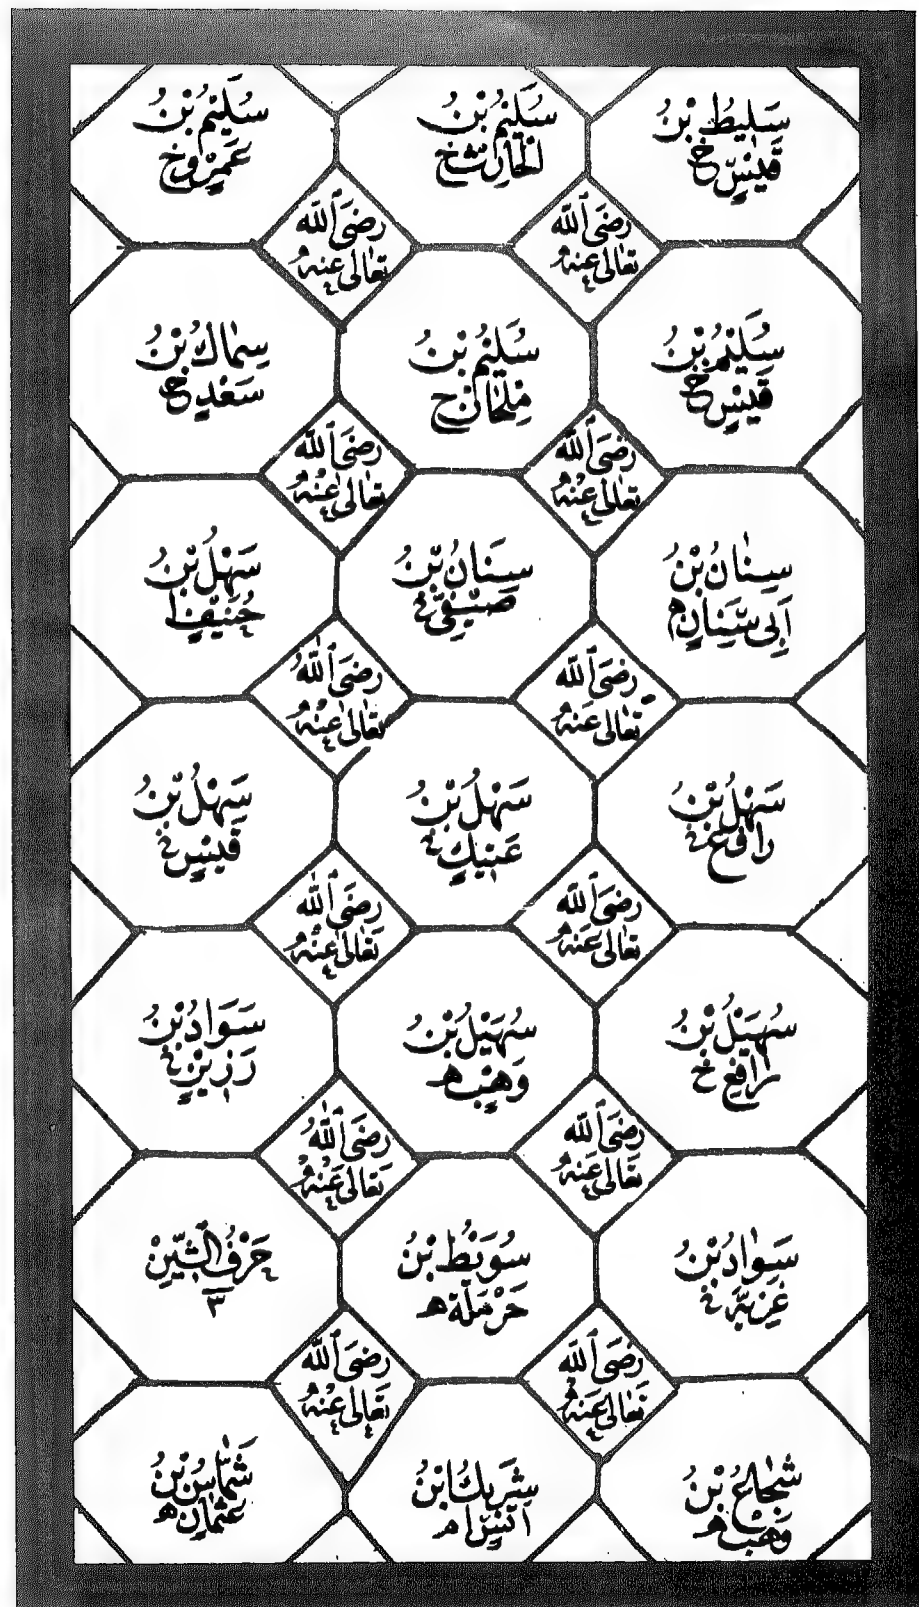 سَلِيطُ بْنُ
قَيْسٍ خ
سُلَيْمُ بْنُ
الْحَارِثِ خ
سُلَيْمُ بْنُ
عَمْرٍو خ
رَضِيَ ٱللّٰهُ
تَعَالٰى عَنْهُ
رَضِيَ ٱللّٰهُ
تَعَالٰى عَنْهُ
سُلَيْمُ بْنُ
قَيْسٍ خ
سُلَيْمُ بْنُ
مِلْحَانَ خ
سِمَاكُ بْنُ
سَعْدٍ خ
رَضِيَ ٱللّٰهُ
تَعَالٰى عَنْهُ
رَضِيَ ٱللّٰهُ
تَعَالٰى عَنْهُ
سِنَانُ بْنُ
أَبِي سِنَانٍ ه
سِنَانُ بْنُ
صَيْفِيٍّ خ
سَهْلُ بْنُ
حُنَيْفٍ ا
رَضِيَ ٱللّٰهُ
تَعَالٰى عَنْهُ
رَضِيَ ٱللّٰهُ
تَعَالٰى عَنْهُ
سَهْلُ بْنُ
رَافِعٍ خ
سَهْلُ بْنُ
عَتِيكٍ خ
سَهْلُ بْنُ
قَيْسٍ خ
رَضِيَ ٱللّٰهُ
تَعَالٰى عَنْهُ
رَضِيَ ٱللّٰهُ
تَعَالٰى عَنْهُ
سُهَيْلُ بْنُ
رَافِعٍ خ
سُهَيْلُ بْنُ
وَهْبٍ ه
سَوَادُ بْنُ
رَزِيْنٍ خ
رَضِيَ ٱللّٰهُ
تَعَالٰى عَنْهُ
رَضِيَ ٱللّٰهُ
تَعَالٰى عَنْهُ
سَوَادُ بْنُ
غَزِيَّةَ خ
سُوَيْبِطُ بْنُ
حَرْمَلَةَ ه
حَرْفُ الشِّيْنِ
٣
رَضِيَ ٱللّٰهُ
تَعَالٰى عَنْهُ
رَضِيَ ٱللّٰهُ
تَعَالٰى عَنْهُ
شُجَاعُ بْنُ
وَهْبٍ ه
شَرِيكُ ابْنُ
أَنَسٍ ا
شَمَّاسُ بْنُ
عُثْمَانَ ه